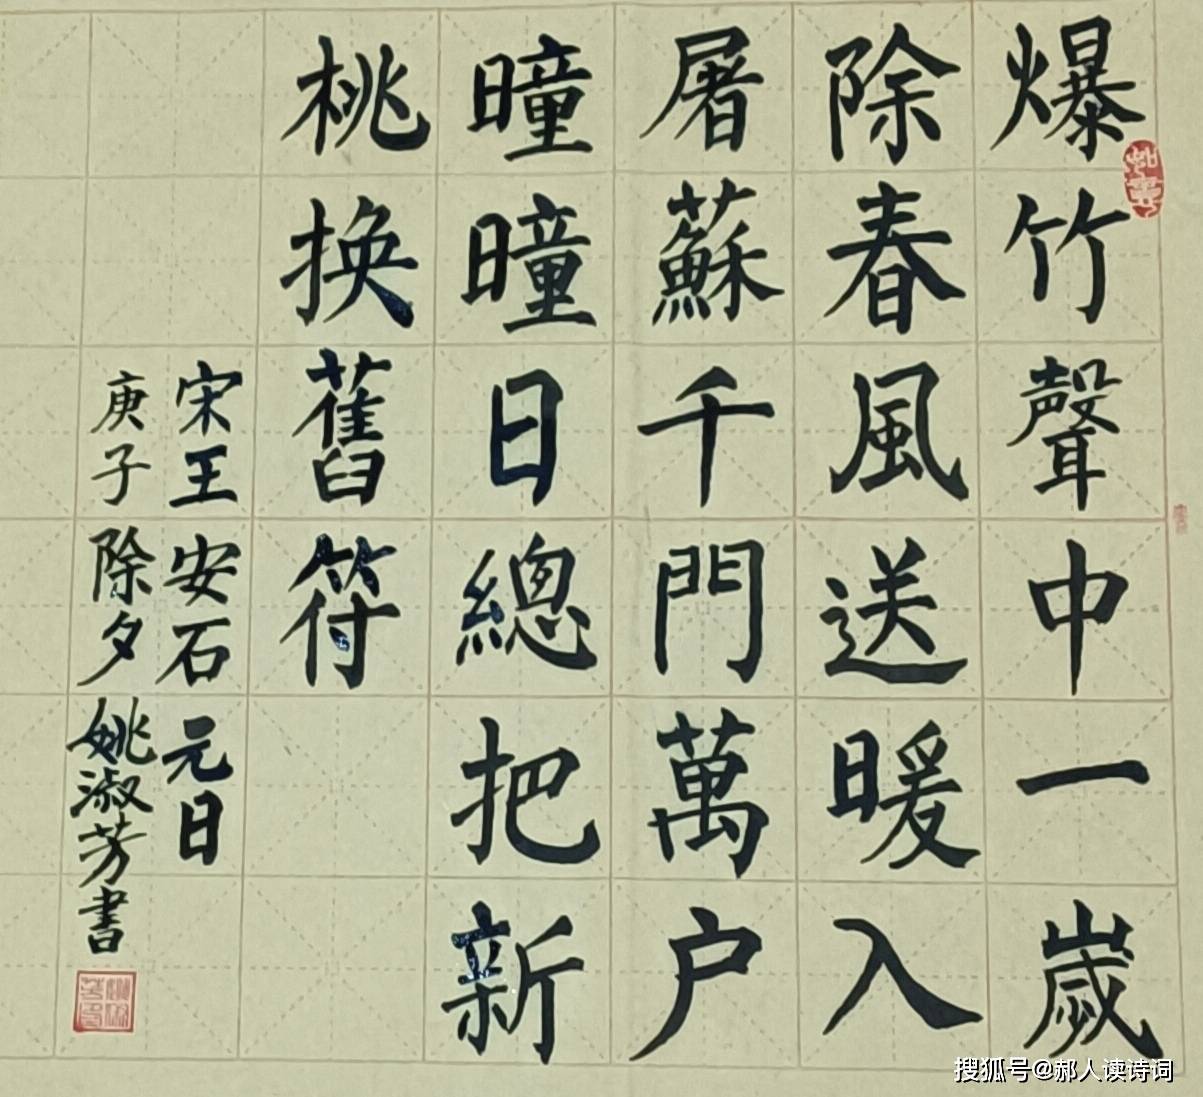 爆竹聲中一歲
除春風送暖入
屠蘇千門萬户
曈曈日總把新
桃换舊符
宋王安石元日
庚子除夕姚淑芳書
搜狐号@郝人读诗词